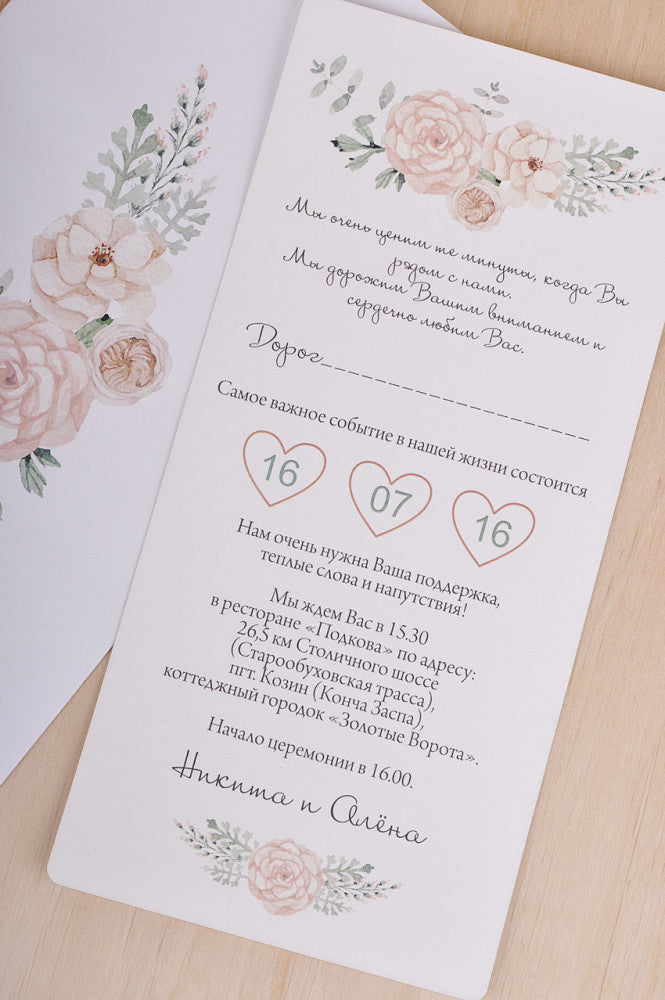 Мы очень ценим те минуты, когда Вы
рядом с нами.
Мы дорожим Вашим вниманием и
сердечно любим Вас.
Дорог____________________
Самое важное событие в нашей жизни состоится
16 07 16
Нам очень нужна Ваша поддержка,
теплые слова и напутствия!
Мы ждем Вас в 15.30
в ресторане «Подкова» по адресу:
26,5 км Столичного шоссе
(Старообуховская трасса),
пгт. Козин (Конча Заспа),
коттеджный городок «Золотые Ворота».
Начало церемонии в 16.00.
Никита и Алёна